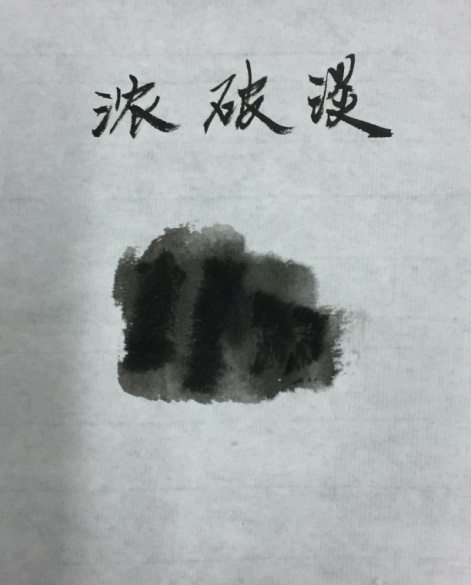 浓破淡